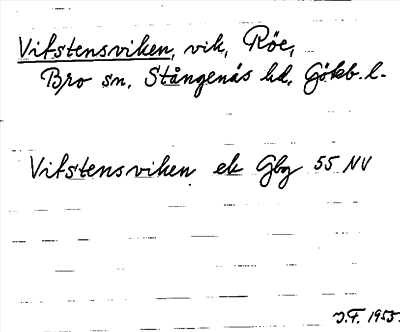 Vitstensviken, vik, Röe,
Bro sn, Stångenäs hd, Gökb. l.
Vitstensviken ek Gbg 55 NV
J.F. 1955.